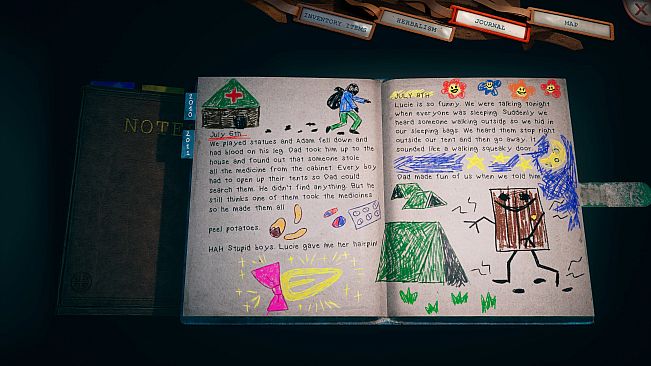 INVENTORY ITEMS
HERBALISM
JOURNAL
MAP
NOTE
2010
2011
July 6th...
We played statues and Adam fell down and
had blood on his leg. Dad took him up to the
house and found out that someone stole
all the medicine from the cabinet. Every boy
had to open up their tents so Dad could
search them. He didn't find anything. But he
still thinks one of them took the medicines
so he made them all
peel potatoes.
HAH Stupid boys. Lucie gave me her hairpin!
JULY 8TH
Lucie is so funny. We were talking tonight
when everyone was sleeping. Suddenly we
heard someone walking outside so we hid in
our sleeping bags. We heard them stop right
outside our tent and then go away. It
sounded like a walking squeaky door.
Dad made fun of us when we told him.